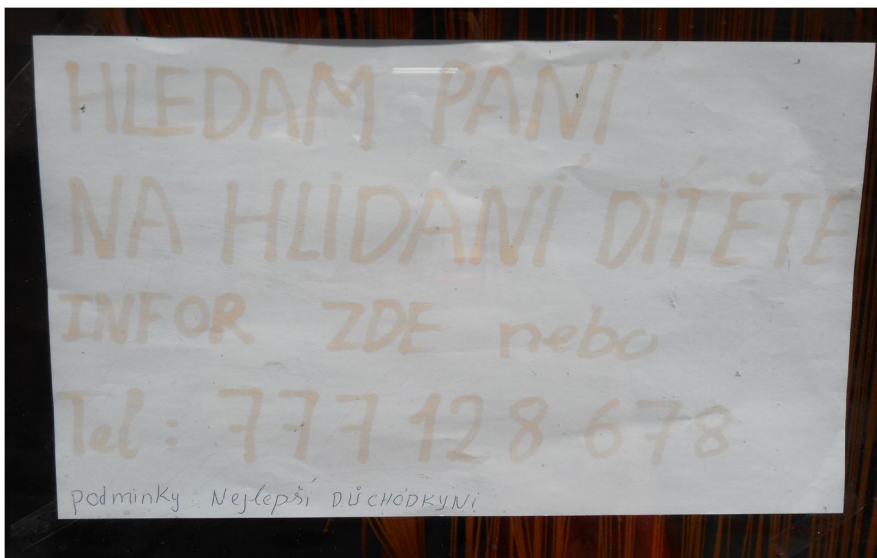 HLEDÁM PANÍ
NA HLÍDÁNÍ DÍTĚTE
INFOR ZDE nebo
Tel: 777 128 678
podminky Nejlepší DŮCHODKYNÍ